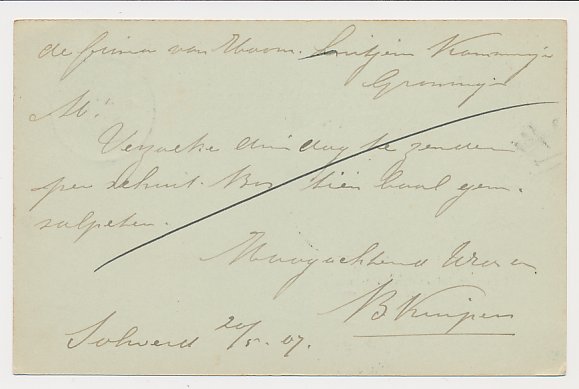 de firma van Hoorn. Luitjen Kamminga
Groningen
M!
Verzoeke dinsdag te zenden
per schuit. Bos tien baal gem.
salpeter.
Hoogachtend
B Kuipers
Solwerd 20/5-07.